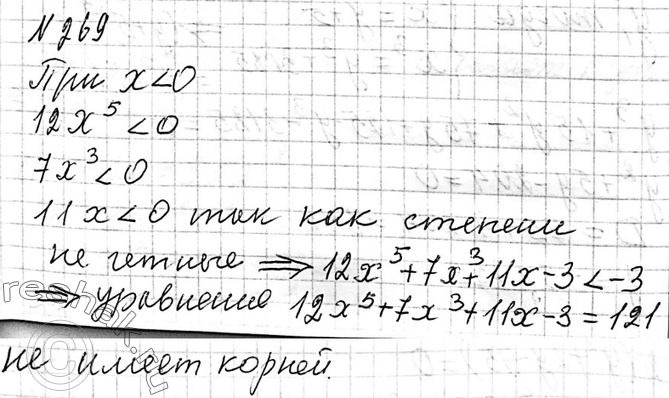 N 269
При x<0
12x⁵ <0
7x³<0
11x<0 так как степени
не четные ⇒ 12x⁵+7x³+11x-3<-3
⇒ уравнение 12x⁵+7x³+11x-3=121
не имеет корней.